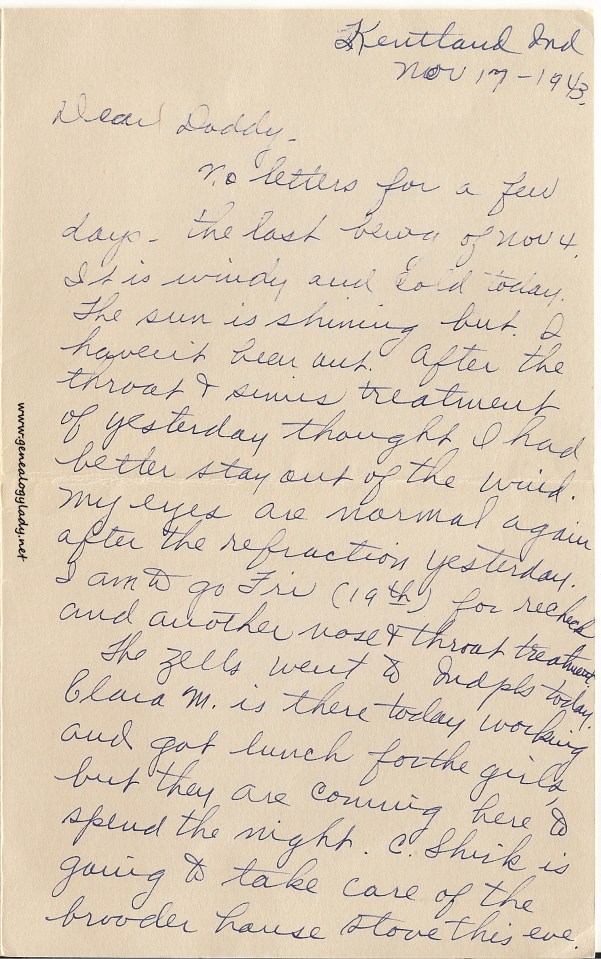 Kentland Ind
Nov 17-1943.
Dear Daddy-
No letters for a few
days- the last being of Nov 4.
It is windy and cold today.
The sun is shining but I
haven't been out. After the
throat & sinus treatment
of yesterday thought I had
better stay out of the wind.
My eyes are normal again
after the refraction yesterday.
I am to go Fri (19th) for recheck
and another nose & throat treatment.
The Zells went to Indpls today.
Clara M. is there today working
and got lunch for the girls,
but they are coming here to
spend the night. C. Shirk is
going to take care of the
brooder house stove this eve.
www.genealogylady.net